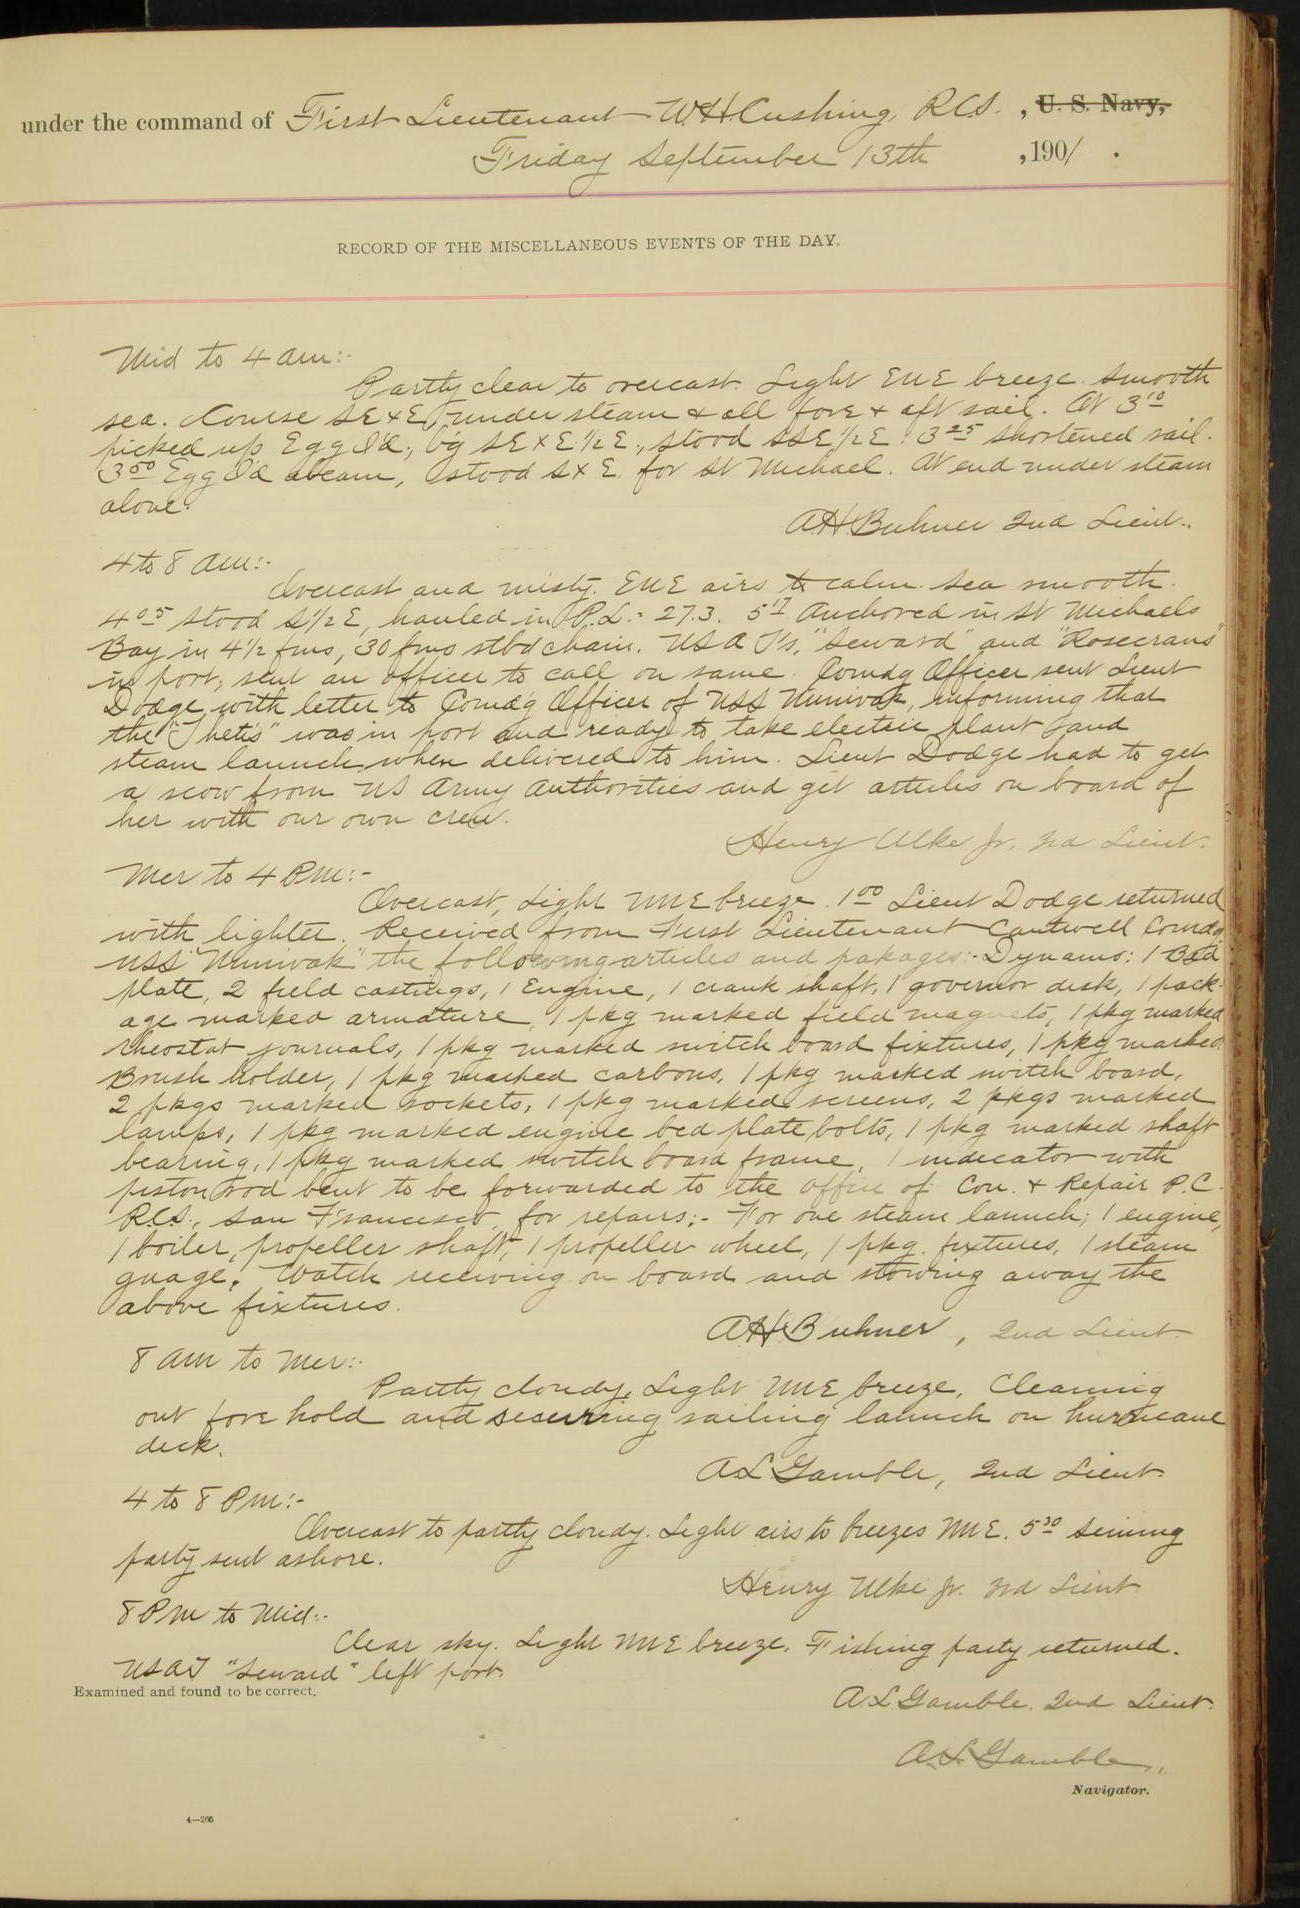 under the command of First Lieutenant W.H. Cushing, R.C.S. , U. S. Navy,
Friday September 13th , 1901 .
RECORD OF THE MISCELLANEOUS EVENTS OF THE DAY.
Mid to 4 am:-
Partly clear to overcast. Light ENE breeze. Smooth
sea. Course SE x E, under steam & all fore & aft sail. At 3 10
picked up Egg I'd., b'g SE x E 1/2 E., stood SSE 1/2 E. 3 25 shortened sail.
3 50 Egg I'd abeam, stood S x E. for St Michael. At end under steam
alone.
A.H. Buhner 2nd Lieut.
4 to 8 am:-
Overcast and misty. ENE airs to calm. Sea smooth.
4 05 stood S 1/2 E, hauled in P.L.- 27.3. 5 17 Anchored in St Michaels
Bay in 4 1/2 fms, 30 fms stbd chain. USA T's, "Seward" and "Rosecrans"
in port; sent an officer to call on same. Comdg Officer sent Lieut
Dodge with letter to Comd'g Officer of USS Nunivak, informing that
the "Thetis" was in port and ready to take electric plant and
steam launch when delivered to him. Lieut Dodge had to get
a scow from US Army Authorities and get articles on board of
her with our own crew.
Henry Ulke Jr. 3rd Lieut.
Mer to 4 PM:-
Overcast, Light NNE breeze. 1 00 Lieut Dodge returned
with lighter. Received from First Lieutenant Cantwell Comdg
USS "Nunivak" the following articles and pakages:- Dynamo: 1 Bed
plate, 2 field castings, 1 Engine, 1 crank shaft, 1 governor disk, 1 pack-
age marked armature, 1 pkg marked field magnets, 1 pkg marked
rheostat journals, 1 pkg marked switch board fixtures, 1 pkg marked
Brush holder, 1 pkg marked carbons, 1 pkg marked switch board,
2 pkgs marked sockets, 1 pkg marked screens, 2 pkgs marked
lamps, 1 pkg marked engine bed plate bolts, 1 pkg marked shaft
bearing, 1 pkg marked switch board frame, 1 indicator with
piston rod bent to be forwarded to the office of Con. & Repair P.C.
R.C.S., San Francisco, for repairs;- For one steam launch; 1 engine,
1 boiler, propeller shaft, 1 propeller wheel, 1 pkg. fixtures, 1 steam
guage. Watch receiving on board and stowing away the
above fixtures.
A.H. Buhner, 2nd Lieut.
8 am to Mer:-
Partly cloudy, Light NNE breeze. Cleaning
out fore hold and securring sailing launch on hurricane
deck.
A.L. Gamble, 2nd Lieut.
4 to 8 Pm:-
Overcast to partly cloudy. Light airs to breezes NNE. 5 30 Seining
party sent ashore.
Henry Ulke Jr. 3rd Lieut.
8 Pm to Mid:-
Clear sky. Light NNE breeze. Fishing party returned.
USAT "Seward" left port.
Examined and found to be correct.
A.L. Gamble. 2nd Lieut.
A.L. Gamble,
Navigator.
4—266